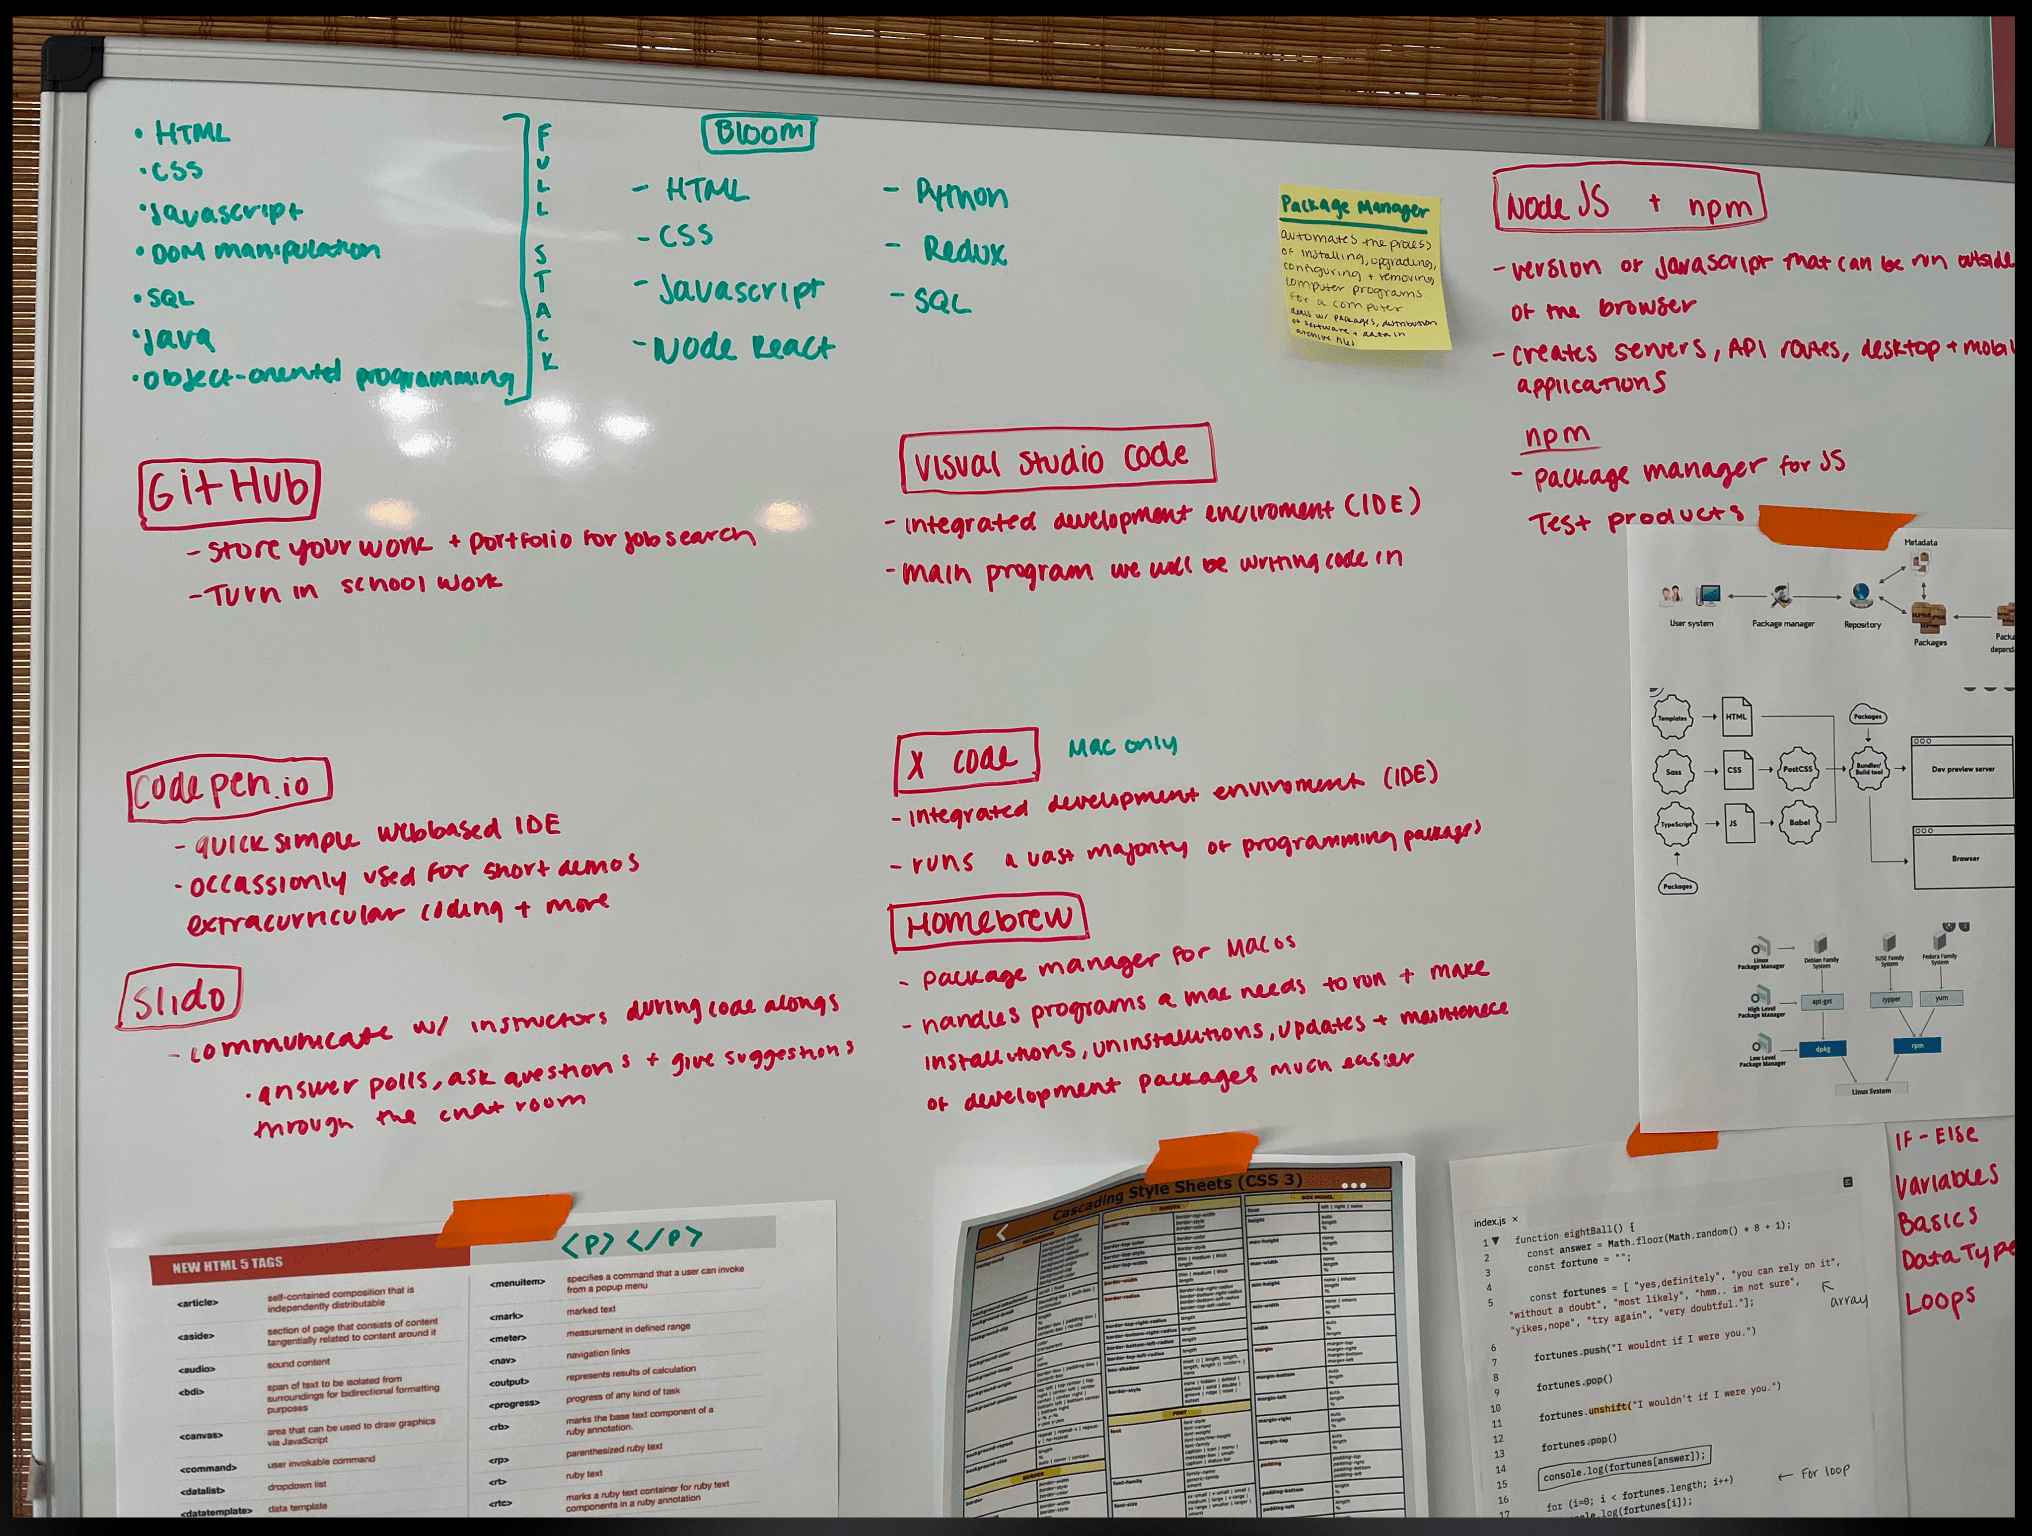 • HTML
• CSS
• Javascript
• DOM manipulation
• SQL
• Java
• object-oriented programming
FULL STACK
Bloom
- HTML
- CSS
- Javascript
- Node React
- Python
- Redux
- SQL
Package Manager
automates the process
of installing, upgrading,
configuring + removing
computer programs
for a computer
deals w/ packages, distribution
of software + data in
archive files
Node JS + npm
- version of javascript that can be run outside
of the browser
- creates servers, API routes, desktop + mobil
applications
npm
- package manager for JS
Test products
GitHub
- store your work + portfolio for job search
- Turn in school work
Visual Studio Code
- integrated development enviroment (IDE)
- main program we will be writing code in
Codepen.io
- quick simple webbased IDE
- occassionly used for short demos
extracurricular coding + more
Slido
- communicate w/ instructors during code alongs
• answer polls, ask questions + give suggestions
through the chat room
X code
Mac only
- integrated development enviroment (IDE)
- runs a vast majority of programming packages
Homebrew
- package manager for Mac os
- handles programs a mac needs to run + make
installutions, uninstallutions, updates + maintenece
of development packages much easier
Metadata
User system
Package manager
Repository
Packages
Packa
depend
Templates
HTML
Packages
Sass
CSS
PostCSS
Bundler/
Build tool
Dev preview server
TypeScript
JS
Babel
Browser
Packages
Linux
Package Manager
Debian Family
System
SUSE Family
System
Fedora Family
System
High Level
Package Manager
apt-get
zypper
yum
Low Level
Package Manager
dpkg
rpm
Linux System
IF - Else
Variables
Basics
Data Type
Loops
NEW HTML 5 TAGS
<P> </P>
<article>
self-contained composition that is
independently distributable
<aside>
section of page that consists of content
tangentially related to content around it
<audio>
sound content
<bdi>
span of text to be isolated from
surroundings for bidirectional formatting
purposes
<canvas>
area that can be used to draw graphics
via JavaScript
<command>
user invokable command
<datalist>
dropdown list
<datatemplate>
data template
<menuitem>
specifies a command that a user can invoke
from a popup menu
<mark>
marked text
<meter>
measurement in defined range
<nav>
navigation links
<output>
represents results of calculation
<progress>
progress of any kind of task
<rb>
marks the base text component of a
ruby annotation.
<rp>
parenthesized ruby text
<rt>
ruby text
<rtc>
marks a ruby text container for ruby text
components in a ruby annotation
Cascading Style Sheets (CSS 3)
BORDER
BOX MODEL
background
border-top
border-top-color
border-top-style
border-width
border-radius
border-top-right-radius
border-bottom-right-radius
border-bottom-left-radius
border-top-left-radius
box-shadow
border-style
FONT
font
font-family
font-size
float
left | right | none
height
max-height
max-width
min-height
min-width
width
margin
margin-bottom
margin-left
margin-right
margin-top
padding
padding-bottom
padding-left
background-color
background-image
background-origin
background-position
background-repeat
background-size
BORDER
border
index.js ×
1 function eightBall() {
2 const answer = Math.floor(Math.random() * 8 + 1);
3 const fortune = "";
4
5 const fortunes = [ "yes,definitely", "you can rely on it",
"without a doubt", "most likely", "hmm.. im not sure",
"yikes,nope", "try again", "very doubtful."];
array
6
7 fortunes.push("I wouldnt if I were you.")
8
9 fortunes.pop()
10
11 fortunes.unshift("I wouldn't if I were you.")
12
13 fortunes.pop()
14 console.log(fortunes[answer]);
15
← For loop
16 for (i=0; i < fortunes.length; i++)
17 console.log(fortunes[i]);